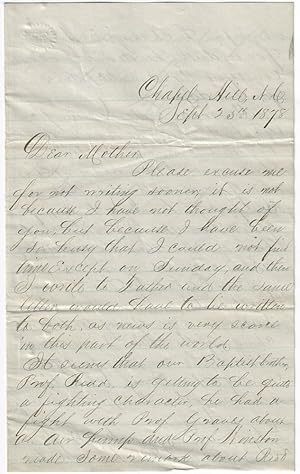 Chapel Hill, N.C.
Sept 25th 1878
Dear Mother
Please excuse me
for not writing sooner, it is not
because I have not thought of
you, but because I have been
so busy that I could not find
time Except on Sunday, and then
I write to Father and the same
letter would have to be written
to both, as news is very scarce
in this part of the world.
It seems that our Baptist brother,
Prof. Redd, is getting to be quite
a fighting character he had a
fight with Prof Graves about
an air pump and Prof Winston
made some remark about Redd